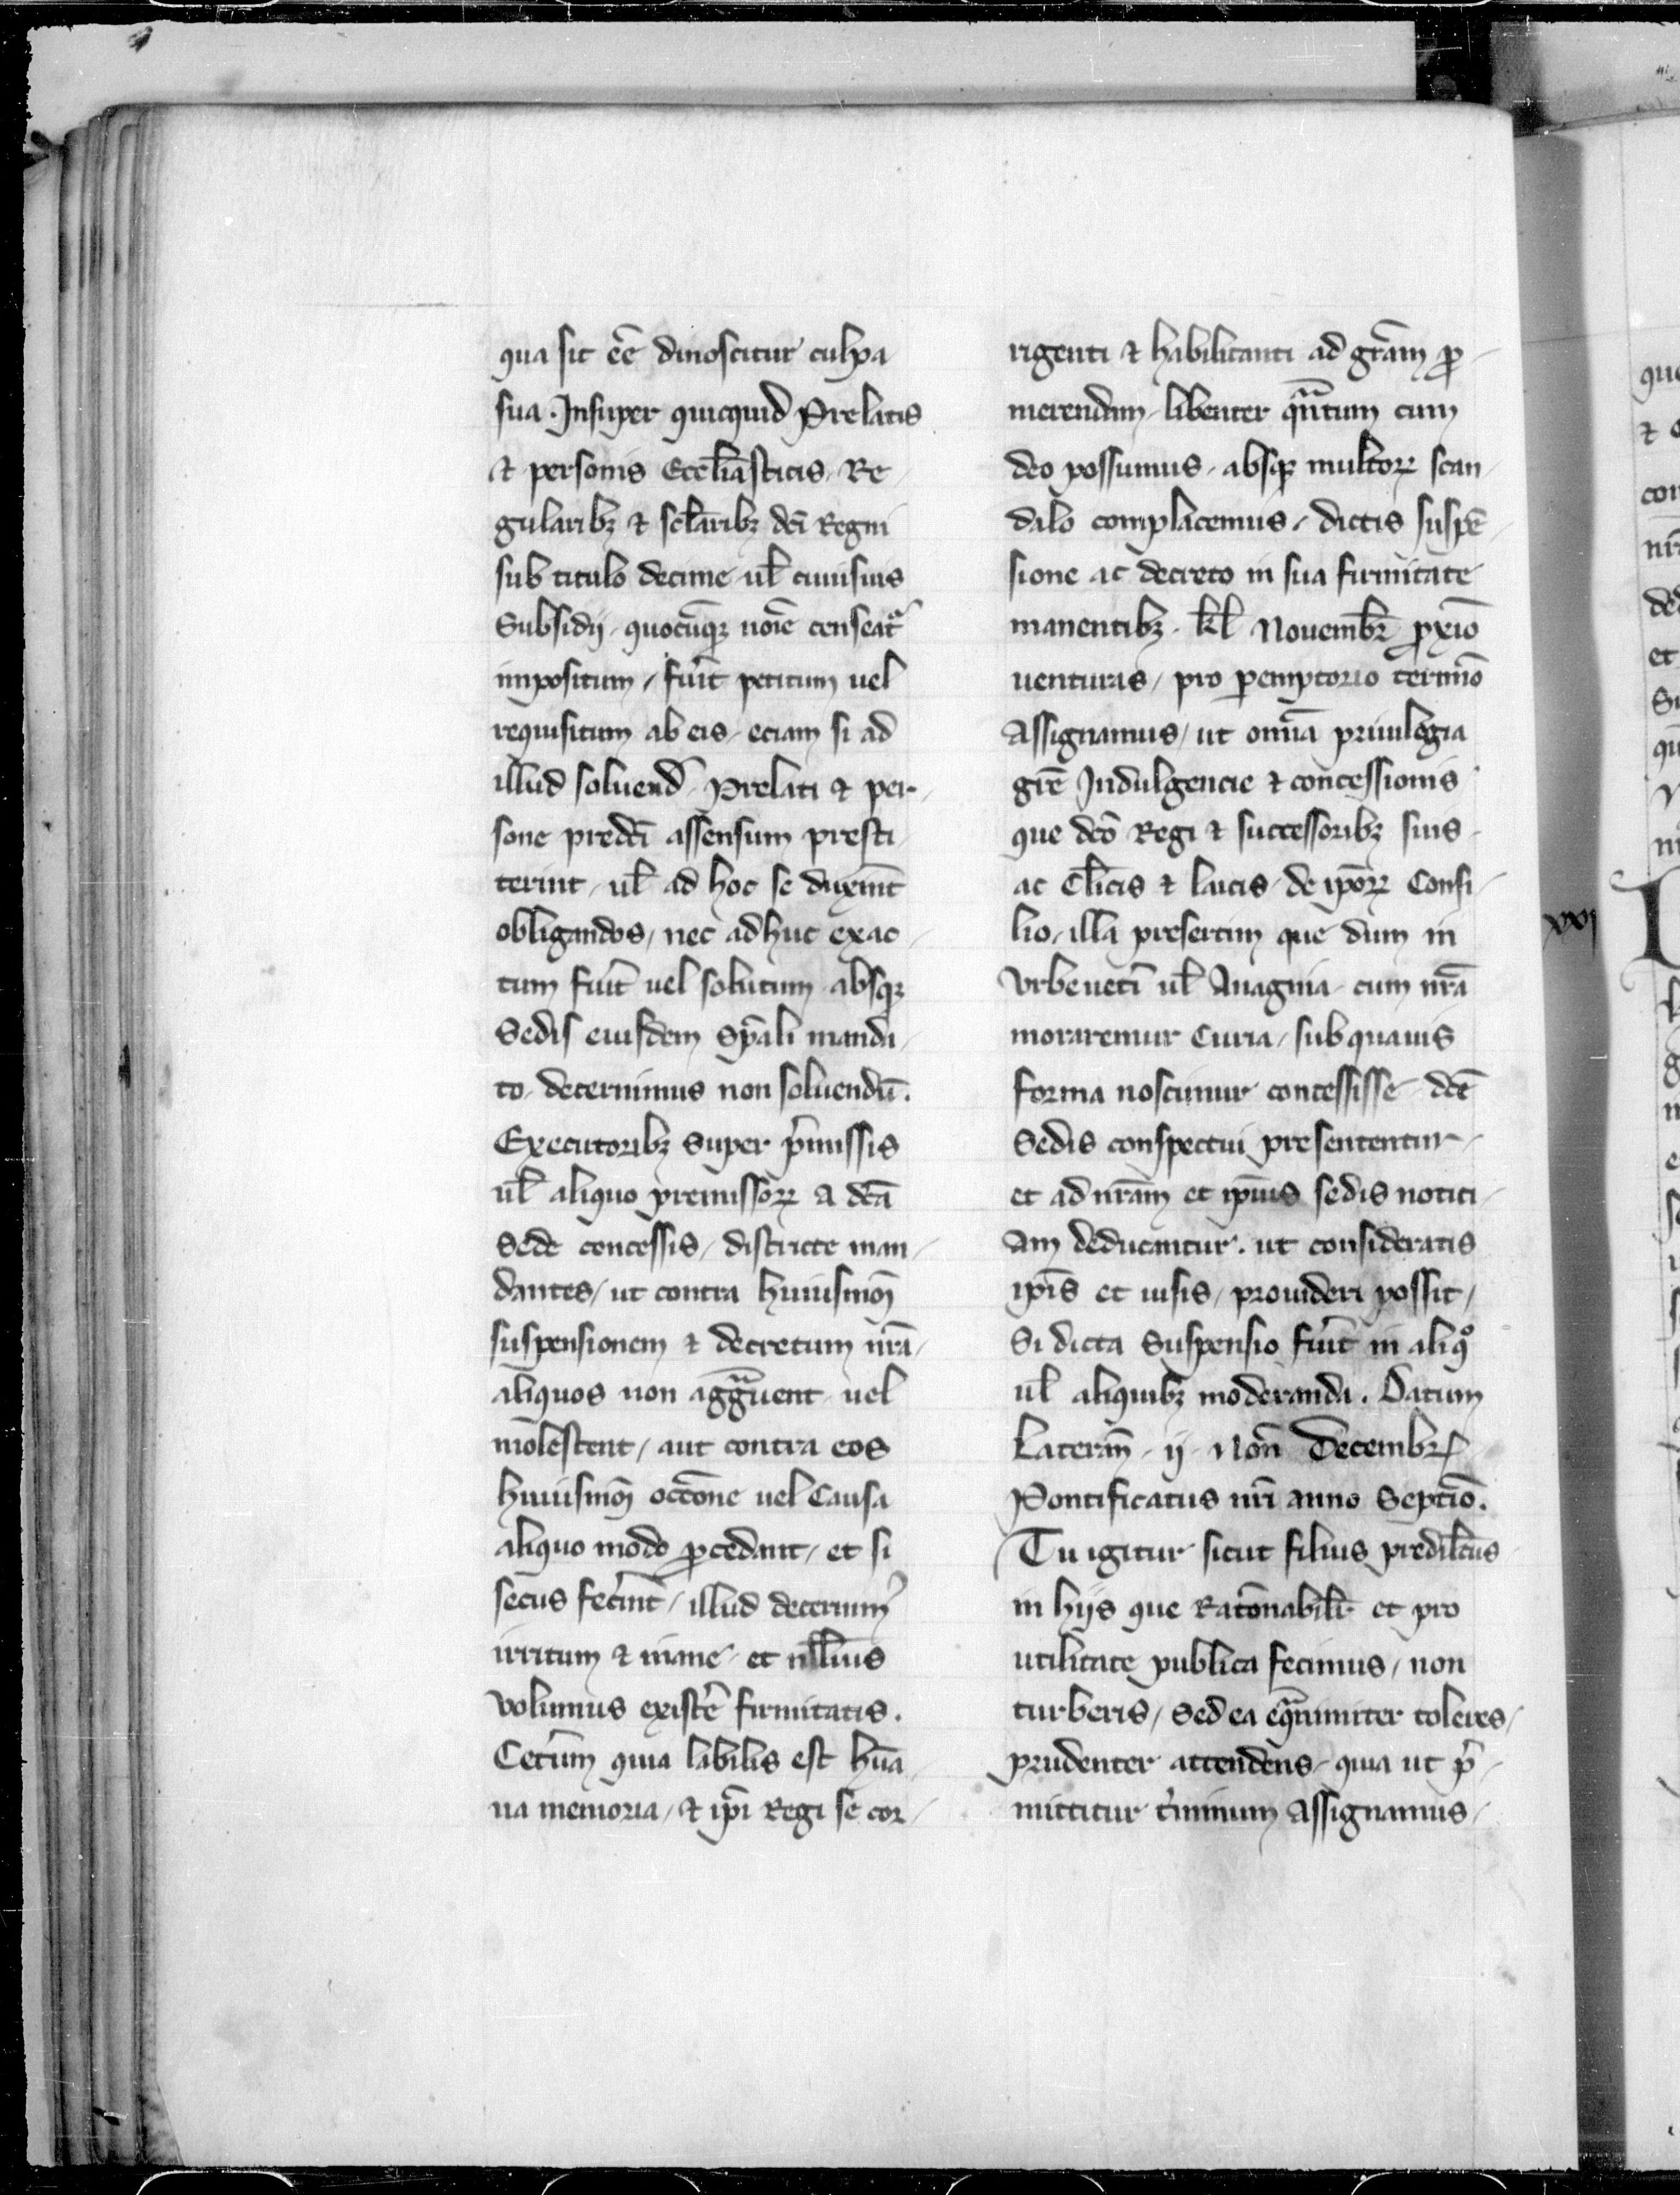 qua sit eē dinoscitur culpa
sua. Insuper quicquid Prelatis
⁊ personis Ecclīasticis, Re
gularibꝫ ⁊ sclaribꝫ dci Regni
sub titulo decime ul̄ cuiusuis
Subsidij, quocūqꝫ noīe censeat᷑
impositum, fuit̄ petitum uel
requisitum ab eis, eciam si ad
illud soluend̄ Prelati ⁊ per
sone predc̄i assensum presti
terint, ul̄ ad hoc se duxerīt
obligandos, nec adhuc exac
tum fuit̄ uel solutum absqꝫ
Sedis eiusdem Sp̄ali manda
to, decernimus non soluendū.
Executoribꝫ super p̄missis
ul̄ aliquo premissoꝝ a dc̄a
Sede concessis, districte man
dantes, ut contra huiusmōi
suspensionem ⁊ decretum nr̄a,
aliquos non aggᵃuent uel
molestent, aut contra eos
huiusmōi occōne uel Causa
aliquo modo ꝓcedant, et si
secus fecerīt, illud decernimꝰ
irritum ⁊ inane, et nullius
volumus exist̄e firmitatis.
Cet̄um quia labilis est hūa
na memoria, ⁊ ip̄i Regi se cor
rigenti ⁊ habilitanti ad gr̄am ꝓ
merendam, libenter qᵃntum cum
deo possumus, absqꝫ multoꝝ scan
dalo complacemus, dictis suspē
sione ac decreto in sua firmitate
manentibꝫ. kl̄ Nouembr̄ ꝓxīo
uenturas, pro ꝑemptorio termīo
Assignamus, ut omīa priuilegia
gr̄e Indulgencie ⁊ concessionis
que dco̅ Regi ⁊ successoribꝫ suis
ac Cl̄icis ⁊ laicis de ip̄oꝝ Consi
lio, illa presertim que dum in
Vrbeuetī ul̄ Anagnia cum nr̄a
moraremur Curia, sub quauis
forma noscimur concessisse dc̄e
Sedis conspectui presententur,
et ad nr̄am et ip̄ius sedis notici
am deducantur. ut consideratis
ip̄is et uisis, prouideri possit,
Si dicta Suspensio fuit̄ in aliqͦ
ul̄ aliquibꝫ moderanda. Datum
Lateran̄ ij Non̄ Decembr̄
Pontificatus nr̄i anno Septīo.
Tu igitur sicut filius predilc̄us
in hijs que Racōnabilit̄ et pro
utilitate publica fecimus, non
turberis, Sed ea eqᵃnimiter toleres,
prudenter attendens, quia ut p̄
mittitur t̄minum Assignamus,
xxi